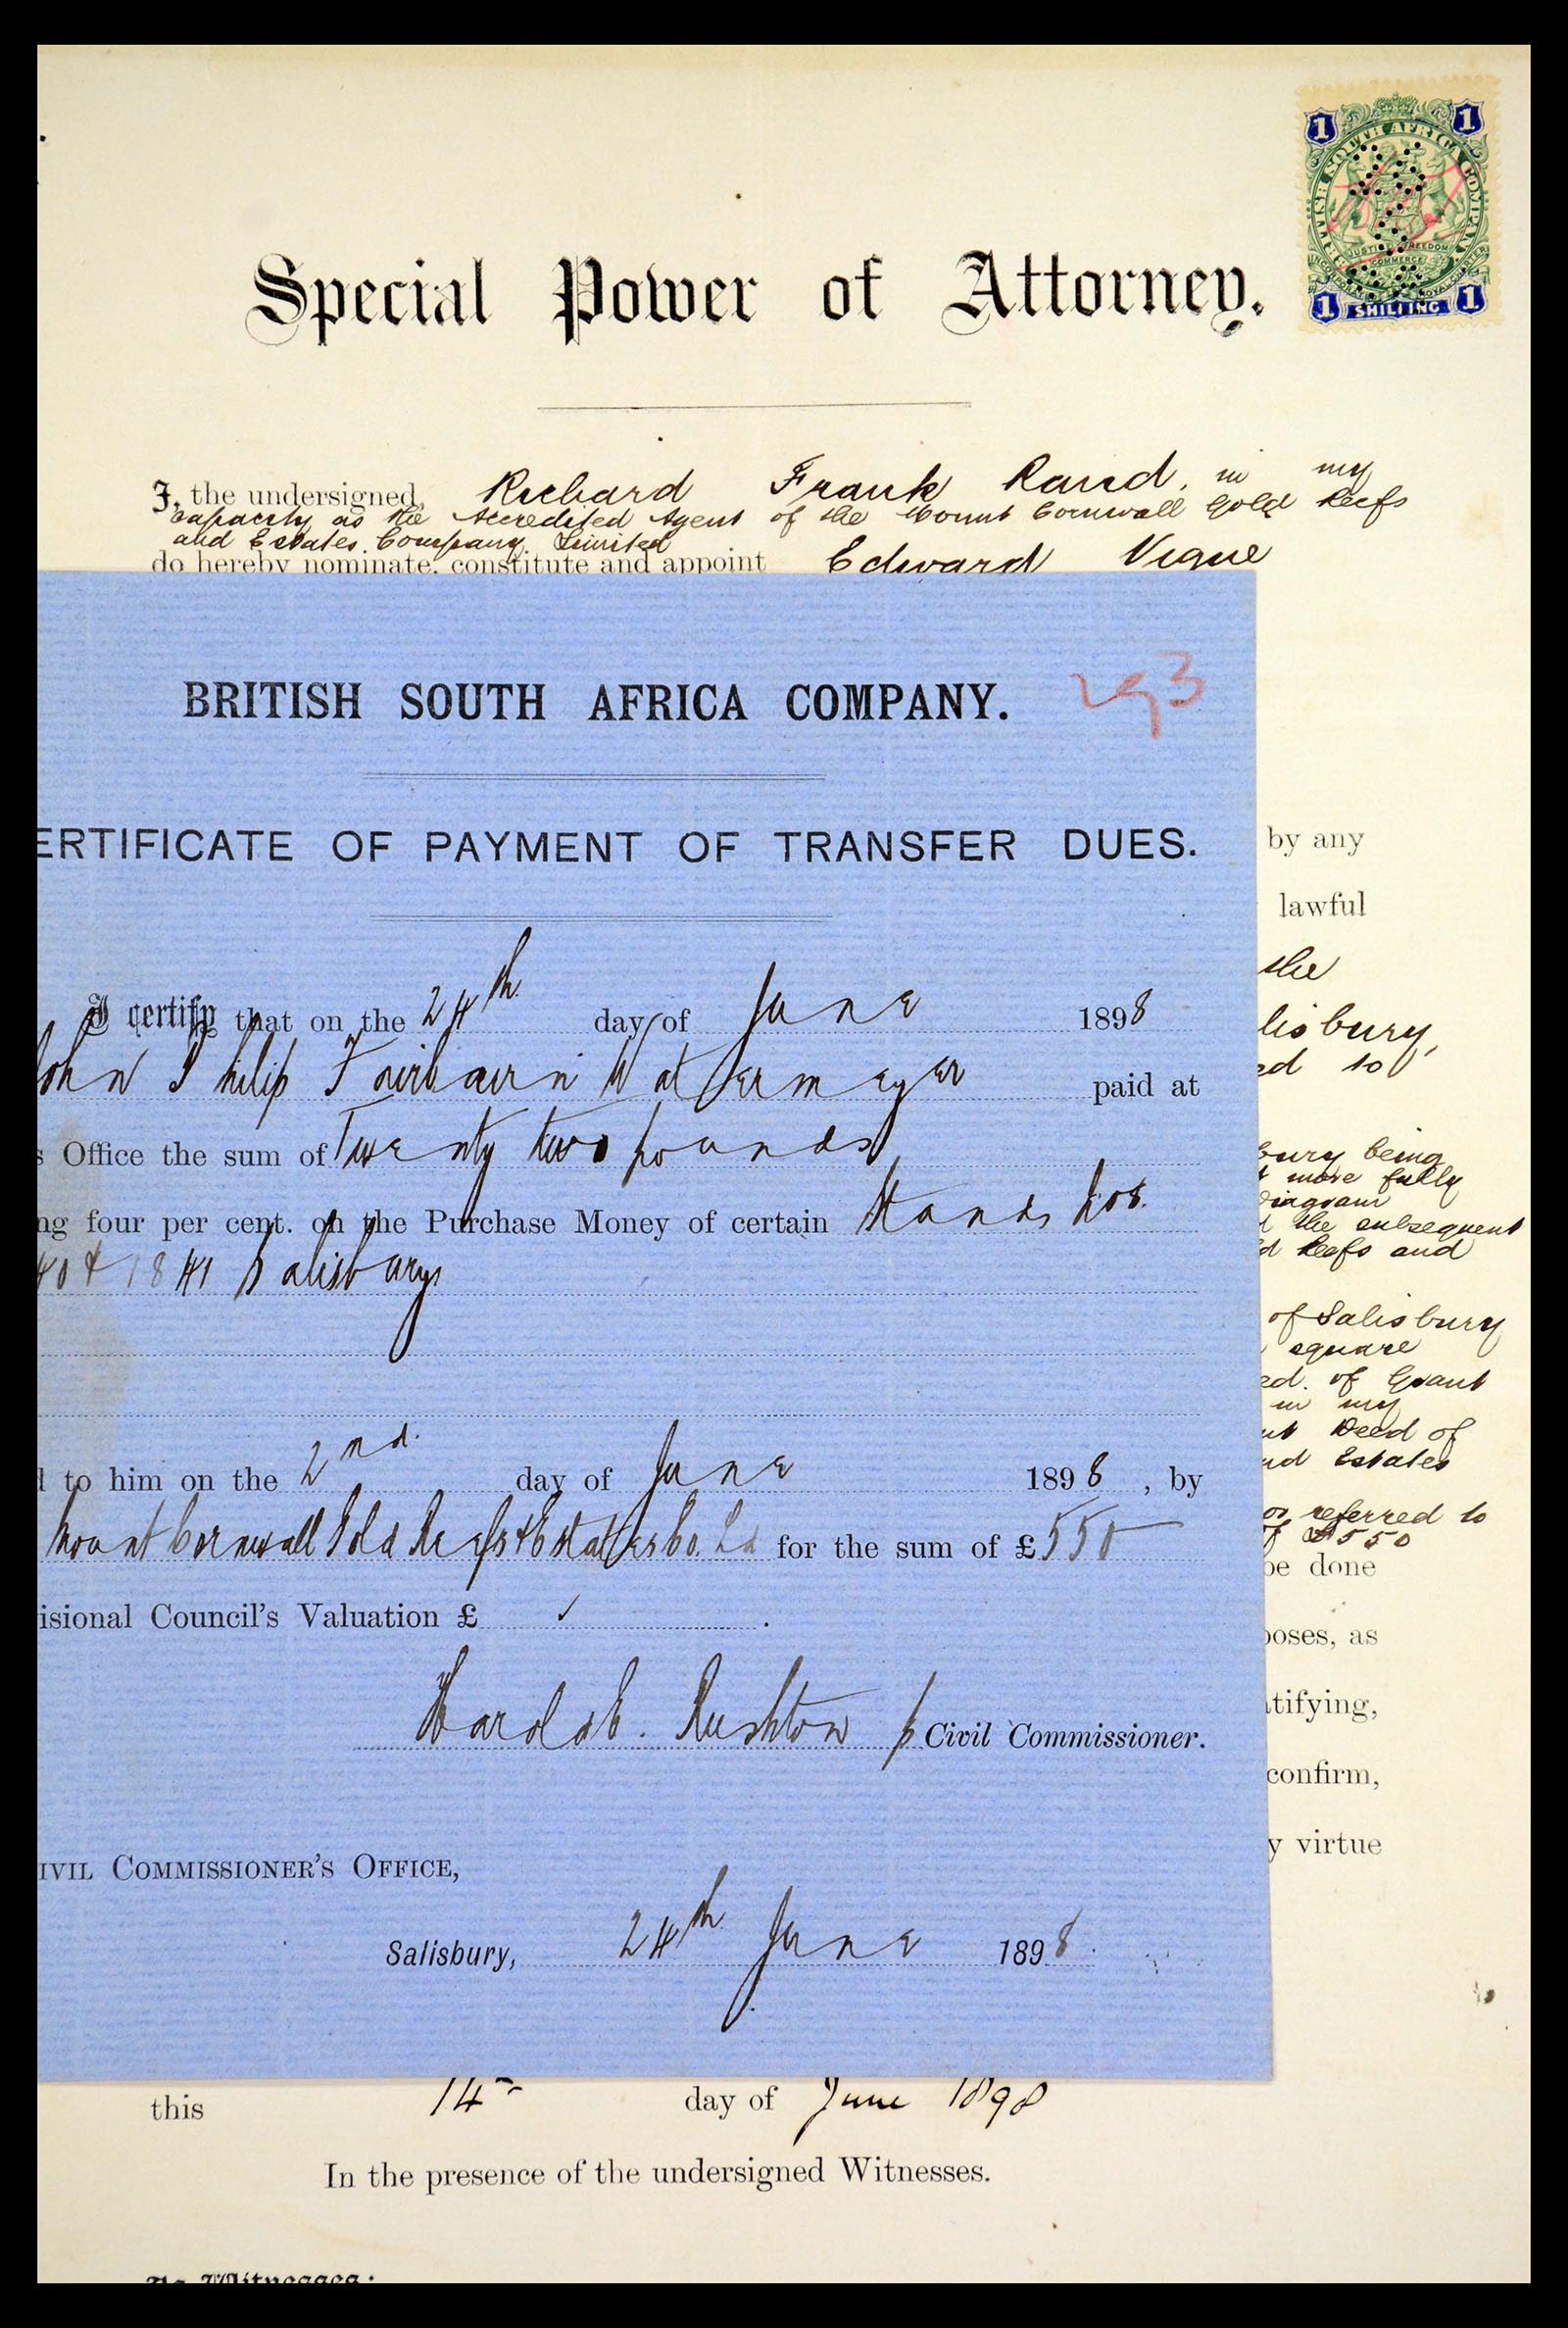 1 1
BRITISH SOUTH AFRICA COMPANY
JUSTICE FREEDOM
COMMERCE
1 SHILLING 1
Special Power of Attorney.
I, the undersigned, Richard Frank Rand, in my
capacity as the Accredited Agent of the Mount Cornwall Gold Reefs
and Estates Company Limited
do hereby nominate, constitute and appoint Edward Vigne
BRITISH SOUTH AFRICA COMPANY.
293
ERTIFICATE OF PAYMENT OF TRANSFER DUES.
I certify that on the 24th day of June 1898
John Philip Fairbairn Watermeyer paid at
s Office the sum of Twenty two pounds
ng four per cent. on the Purchase Money of certain Stands Nos.
40 & 1841 Salisbury
d to him on the 2nd. day of June 1898, by
Mount Cornwall Gold Reefs & Estates Co. Ld for the sum of £550
isional Council's Valuation £ .
Harold E. Rushton p Civil Commissioner.
IVIL COMMISSIONER'S OFFICE,
Salisbury, 24th June 1898.
by any
lawful
the
lisbury,
ed to
bury being
more fully
Diagram
d the subsequent
ld Reefs and
of Salisbury
square
ed. of Grant
in my
nt Deed of
nd Estates
or referred to
of £550
be done
poses, as
atifying,
confirm,
y virtue
this 14th day of June 1898
In the presence of the undersigned Witnesses.
As Witnesses: